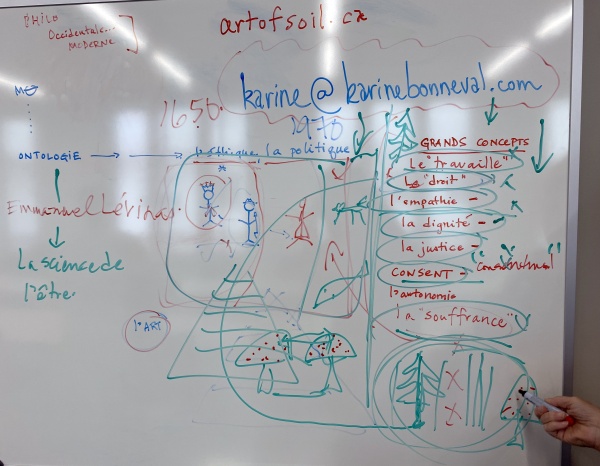 PHILO
Occidentale...
MODERNE
artofsoil.ca
karine@karinebonneval.com
1650
1970
ONTOLOGIE
l'éthique, la politique
Emmanuel Lévinas.
La science de
l'être
l'ART
GRANDS CONCEPTS
Le "travaille"
Le "droit"
l'empathie -
la dignité -
la justice -
CONSENT -
l'autonomie
la "souffrance"